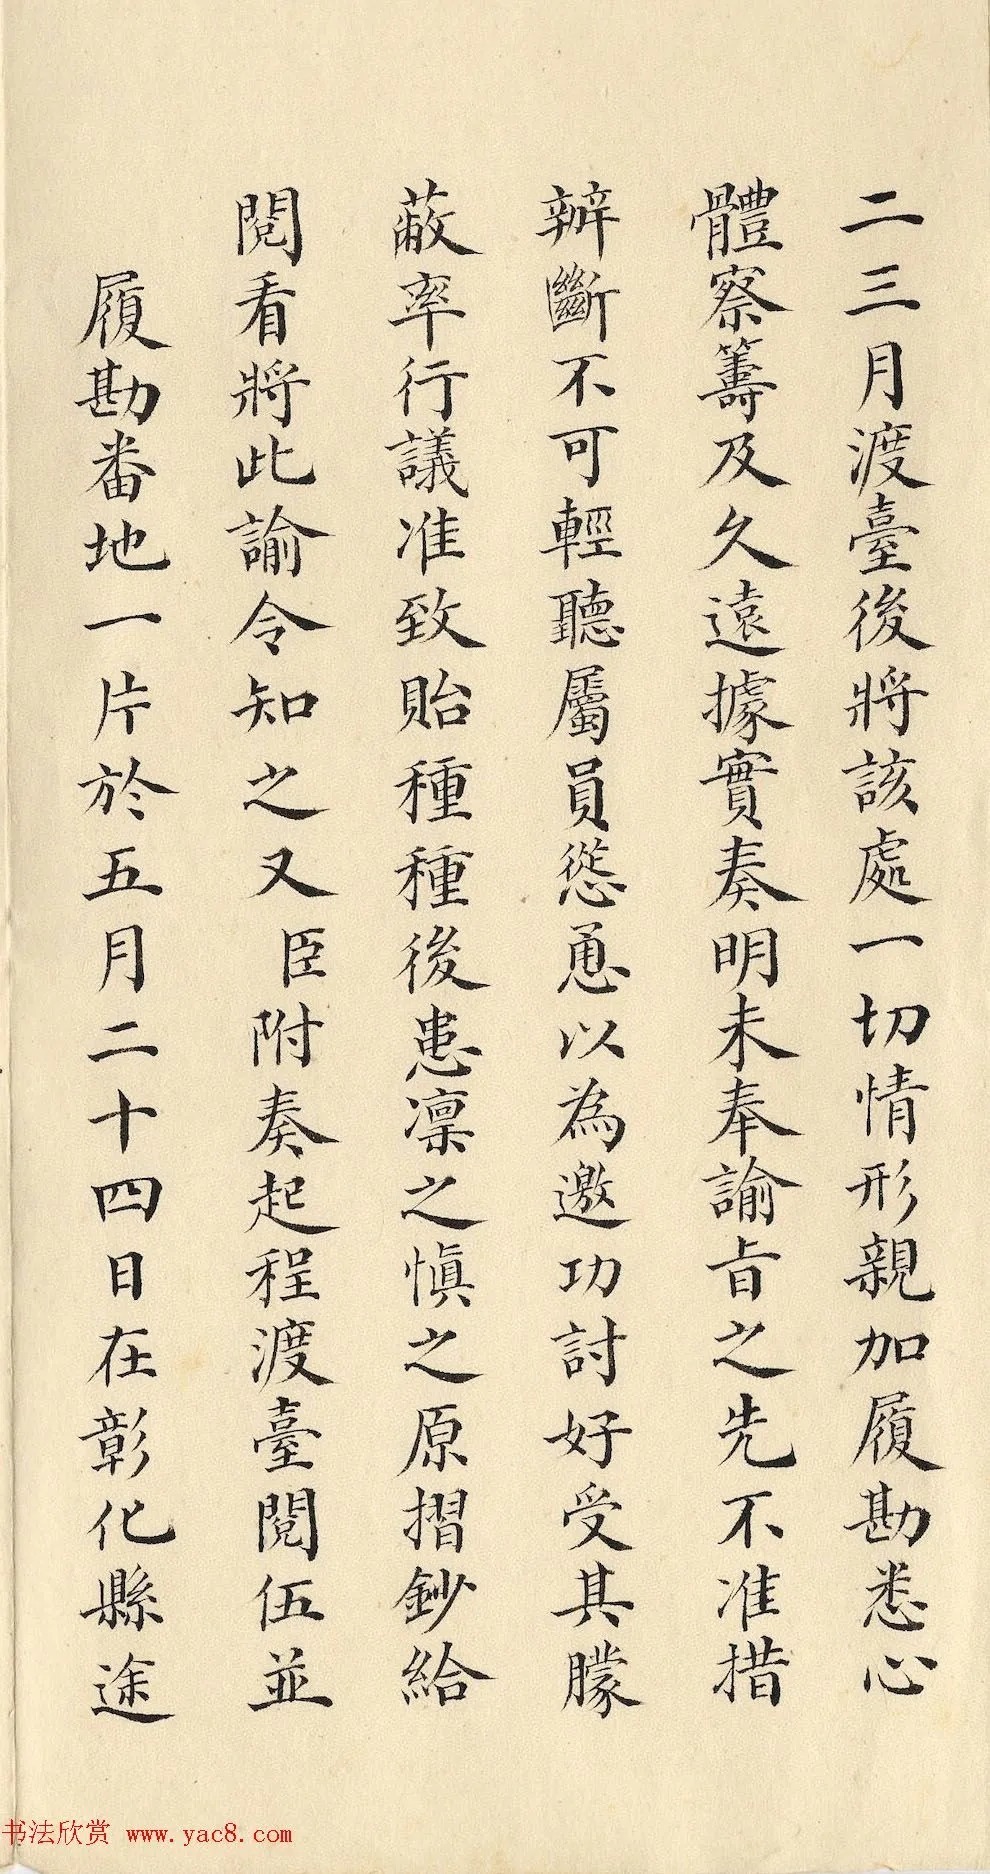 二三月渡臺後將該處一切情形親加履勘悉心
體察籌及久遠據實奏明未奉諭旨之先不准措
辦斷不可輕聽屬員慫恿以為邀功討好受其朦
蔽率行議准致貽種種後患凜之慎之原摺鈔給
閱看將此諭令知之又臣附奏起程渡臺閱伍並
履勘番地一片於五月二十四日在彰化縣途
书法欣赏 www.yac8.com